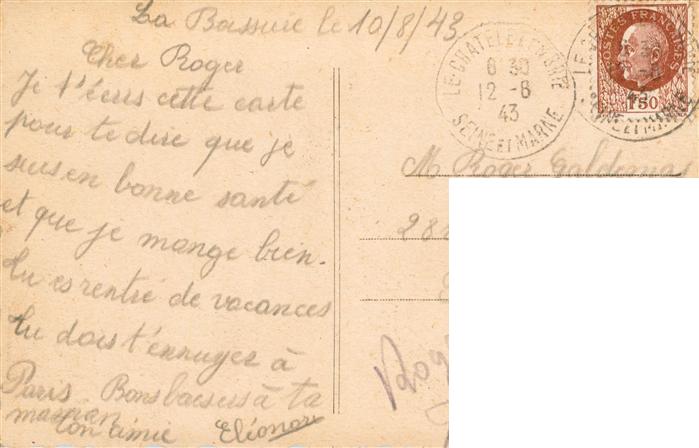 La Bassuie le 10/8/43
Cher Roger
Je t'écris cette carte
pour te dire que je
suis en bonne santé
et que je mange bien.
tu es rentré de vacances
tu dois t'ennuyer à
Paris Bons baisers à ta
maman
ton amie Eléonore
LE CHATELET EN BRIE
8 30
12 - 8
43
SEINE ET MARNE
POSTES FRANÇAISES
1F50
43
SEINE ET MARNE
M Roger
28
Rog